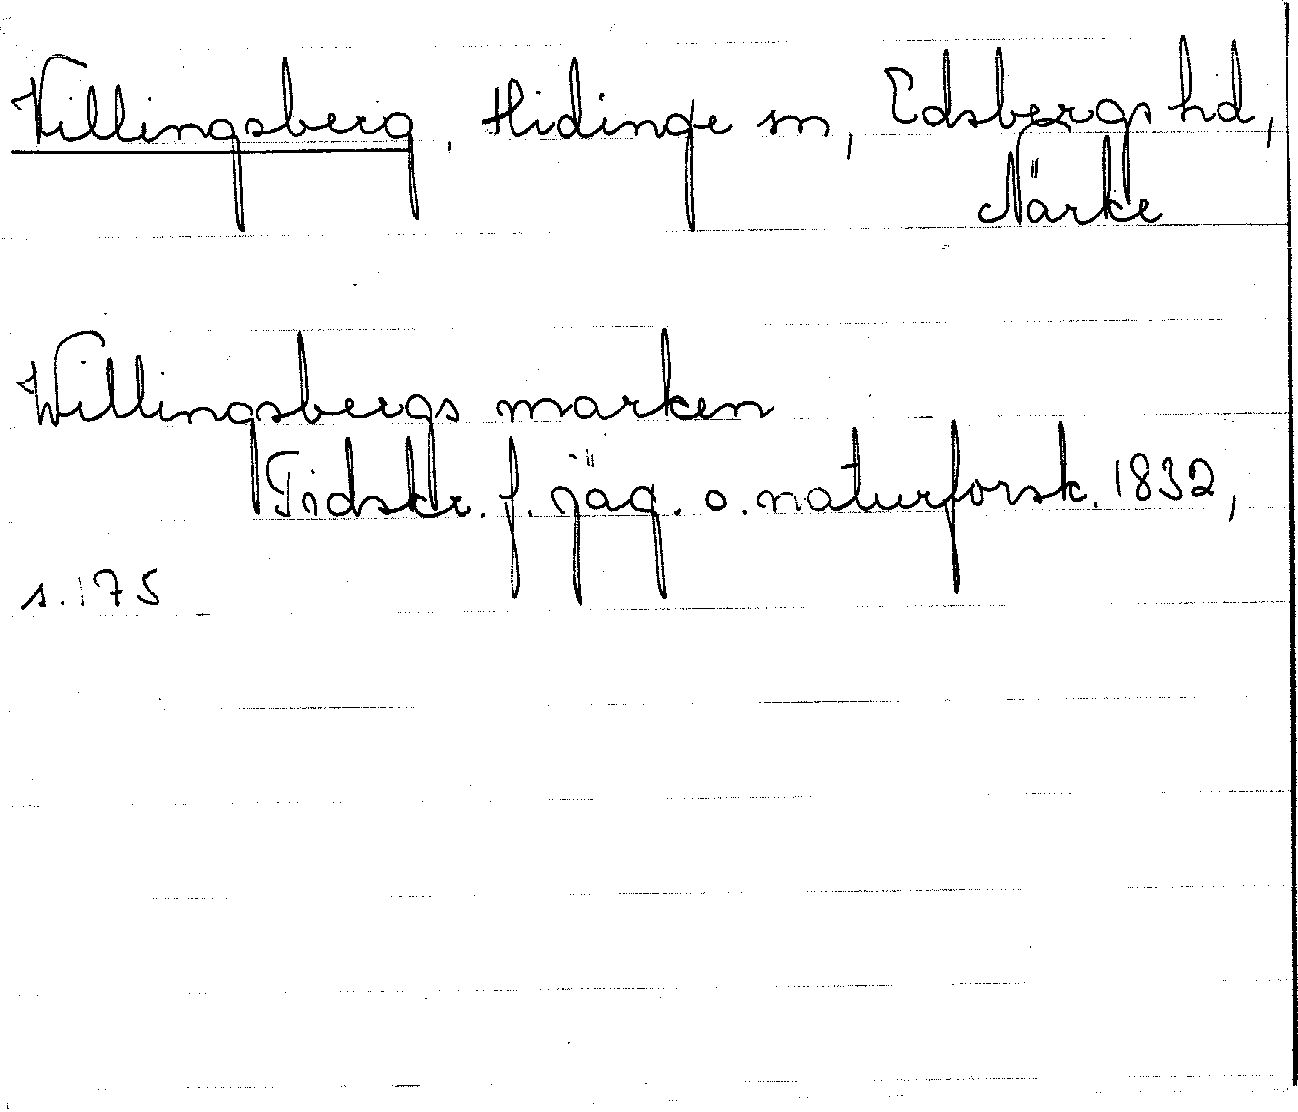 Villingsberg, Hidinge sn, Edsbergs hd,
Närke
Willingsbergs marken
Tidskr. f. jäg. o. naturforsk. 1832,
s. 175